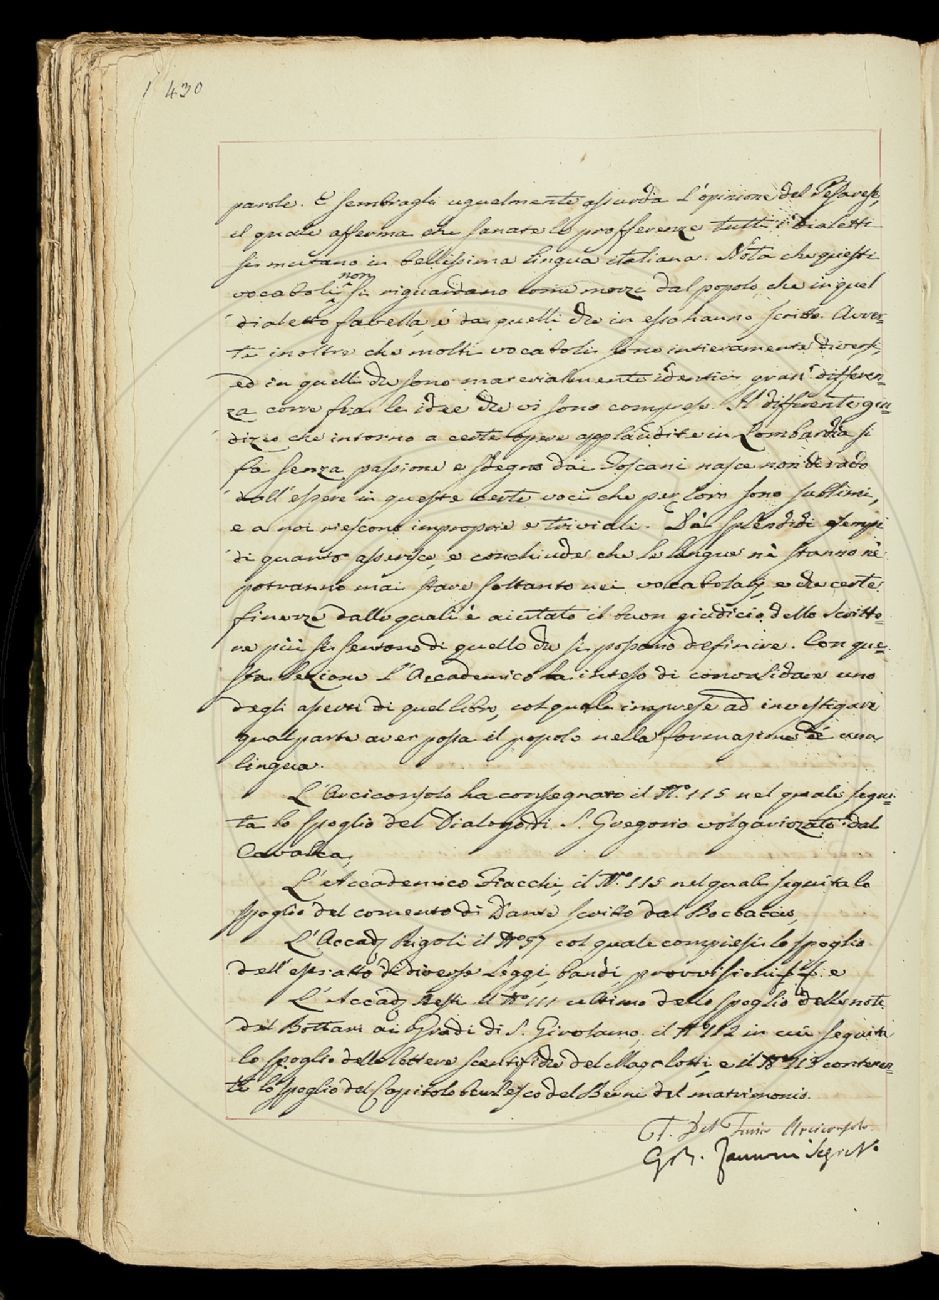 430
parole. E sembragli ugualmente assurda l'opinione del Pesarese,
il quale afferma che sanate le profferenze tutti i Dialetti
si mutano in bellissima lingua italiana. Nota che questi
vocaboli non si riguardano come morti dal popolo, che in quel
dialetto favella, e da quelli, che in esso hanno scritto. Avver-
te inoltre che molti vocaboli sono intieramente diversi,
ed in quelli che sono materialmente identici gran differen-
za corre fra le idee che vi sono comprese. Il differente giu-
dizio che intorno a certe opere applaudite in Lombardia si
fa senza passione e sdegno dai Toscani nasce non di rado
dall'essere in queste certe voci che per loro sono sublimi,
e a noi riescono improprie e triviali. Dà splendidi esempi
di quanto asserisce, e conchiude che le lingue nè stanno nè
potranno mai stare soltanto nei vocabolarj, e che certe
finezze dalle quali è aiutato il buon giudicio dello Scritto-
re più si sentono di quello che si possano definire. Con que-
sta Lezione l'Accademico ha inteso di convalidare uno
degli asserti di quel libro, col quale imprese ad investigare
qual parte aver possa il popolo nella formazione di una
lingua.
L'Arciconsolo ha consegnato il N.º 115 nel quale segui-
ta lo spoglio del Dialogo di S. Gregorio volgarizzato dal
Cavalca,
L'Accademico Fiacchi, il N.º 115 nel quale seguita lo
spoglio del comento di Dante scritto dal Boccaccio,
L'Accad. Rigoli il N.º 57 col quale compiesi lo spoglio
dell'estratto di diverse Leggi, bandi, provvisioni e
L'Accad. il N.º 111 ultimo dello spoglio delle note
del Bottari ai Gradi di S. Girolamo, il N.º 112 in cui seguita
lo spoglio delle lettere scientifiche del Magalotti, e il N.º 113 contenen-
te lo spoglio del Capitolo burlesco del Berni del matrimonio.
T. Del Furia Arciconsolo
G.B. Zannoni Segret.º